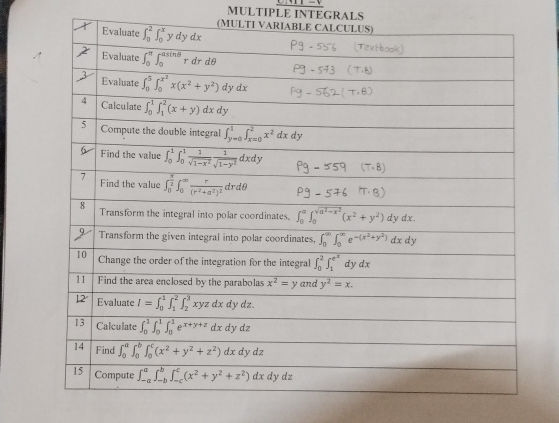 UNIT - V
MULTIPLE INTEGRALS
(MULTI VARIABLE CALCULUS)
1 Evaluate ∫₀² ∫₀ˣ y dy dx Pg - 556 (Textbook)
2 Evaluate ∫₀^π ∫₀^{a sinθ} r dr dθ Pg - 573 (T.B)
3 Evaluate ∫₀⁵ ∫₀^{x²} x(x² + y²) dy dx Pg - 562 (T.B)
4 Calculate ∫₀¹ ∫₁² (x + y) dx dy
5 Compute the double integral ∫_{y=0}^{1} ∫_{x=0}^{2} x² dx dy
6 Find the value ∫₀¹ ∫₀¹ 1/√(1−x²) 1/√(1−y²) dxdy Pg - 559 (T.B)
7 Find the value ∫₀^{π/2} ∫₀^∞ r/(r²+a²)² drdθ Pg - 576 (T.B)
8 Transform the integral into polar coordinates, ∫₀^a ∫₀^{√(a²−x²)} (x² + y²) dy dx.
9 Transform the given integral into polar coordinates, ∫₀^∞ ∫₀^∞ e^{−(x²+y²)} dx dy
10 Change the order of the integration for the integral ∫₀² ∫₁^{eˣ} dy dx
11 Find the area enclosed by the parabolas x² = y and y² = x.
12 Evaluate I = ∫₀¹ ∫₁² ∫₂³ xyz dx dy dz.
13 Calculate ∫₀¹ ∫₀¹ ∫₀¹ e^{x+y+z} dx dy dz
14 Find ∫₀^a ∫₀^b ∫₀^c (x² + y² + z²) dx dy dz
15 Compute ∫_{−a}^{a} ∫_{−b}^{b} ∫_{−c}^{c} (x² + y² + z²) dx dy dz